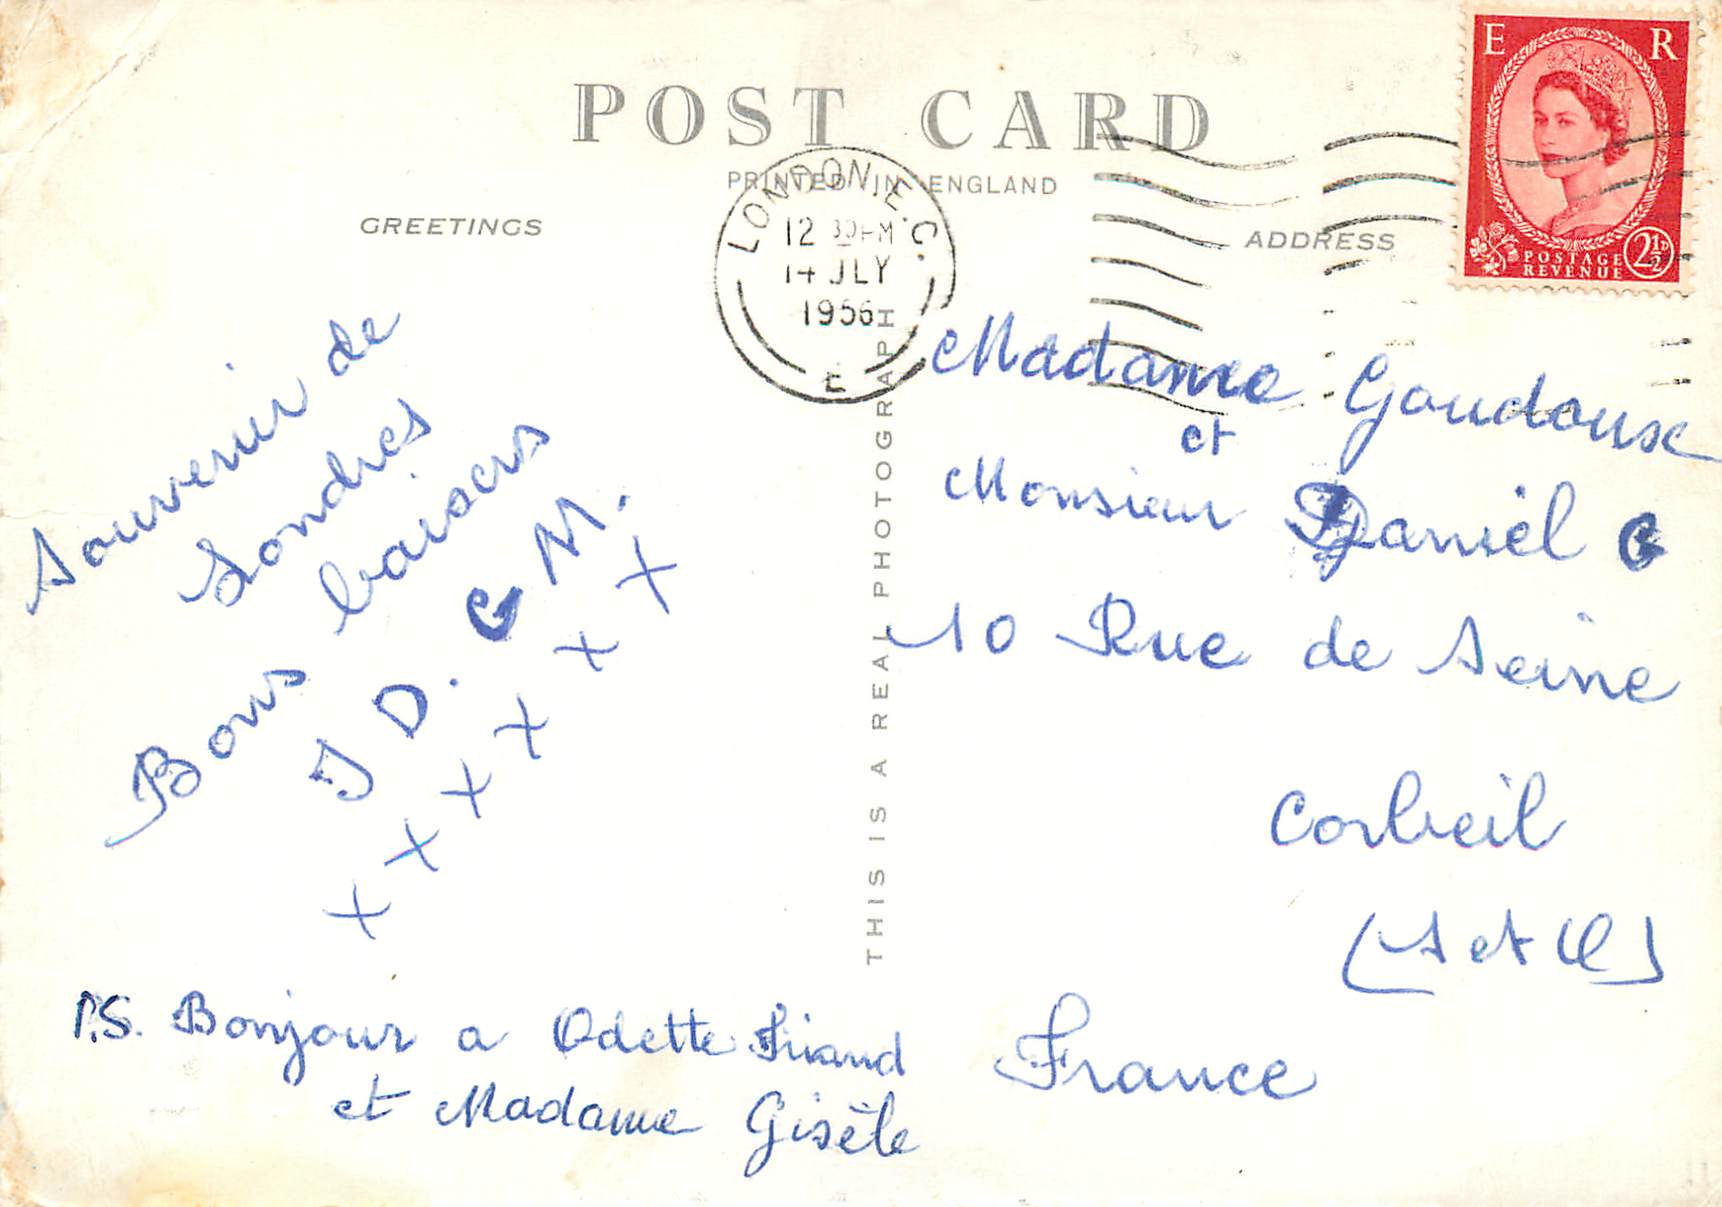 POST CARD
PRINTED IN ENGLAND
GREETINGS
ADDRESS
LONDON. E.C.
12 30 PM
14 JLY
1956
E
E R
POSTAGE
REVENUE
2½D
THIS IS A REAL PHOTOGRAPH
Souvenir de
Londres
Bons baisers
J D. G M.
x x x x x x
P.S. Bonjour a Odette
et Madame Gisèle
Madame Goudoux
et
Monsieur Daniel G
10 Rue de Seine
Corbeil
(S et O)
France